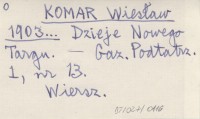 0
KOMAR Wiesław
1903... Dzieje Nowego
Targu. — Gaz. Podtatrz.
1, nr 13.
Wiersz.